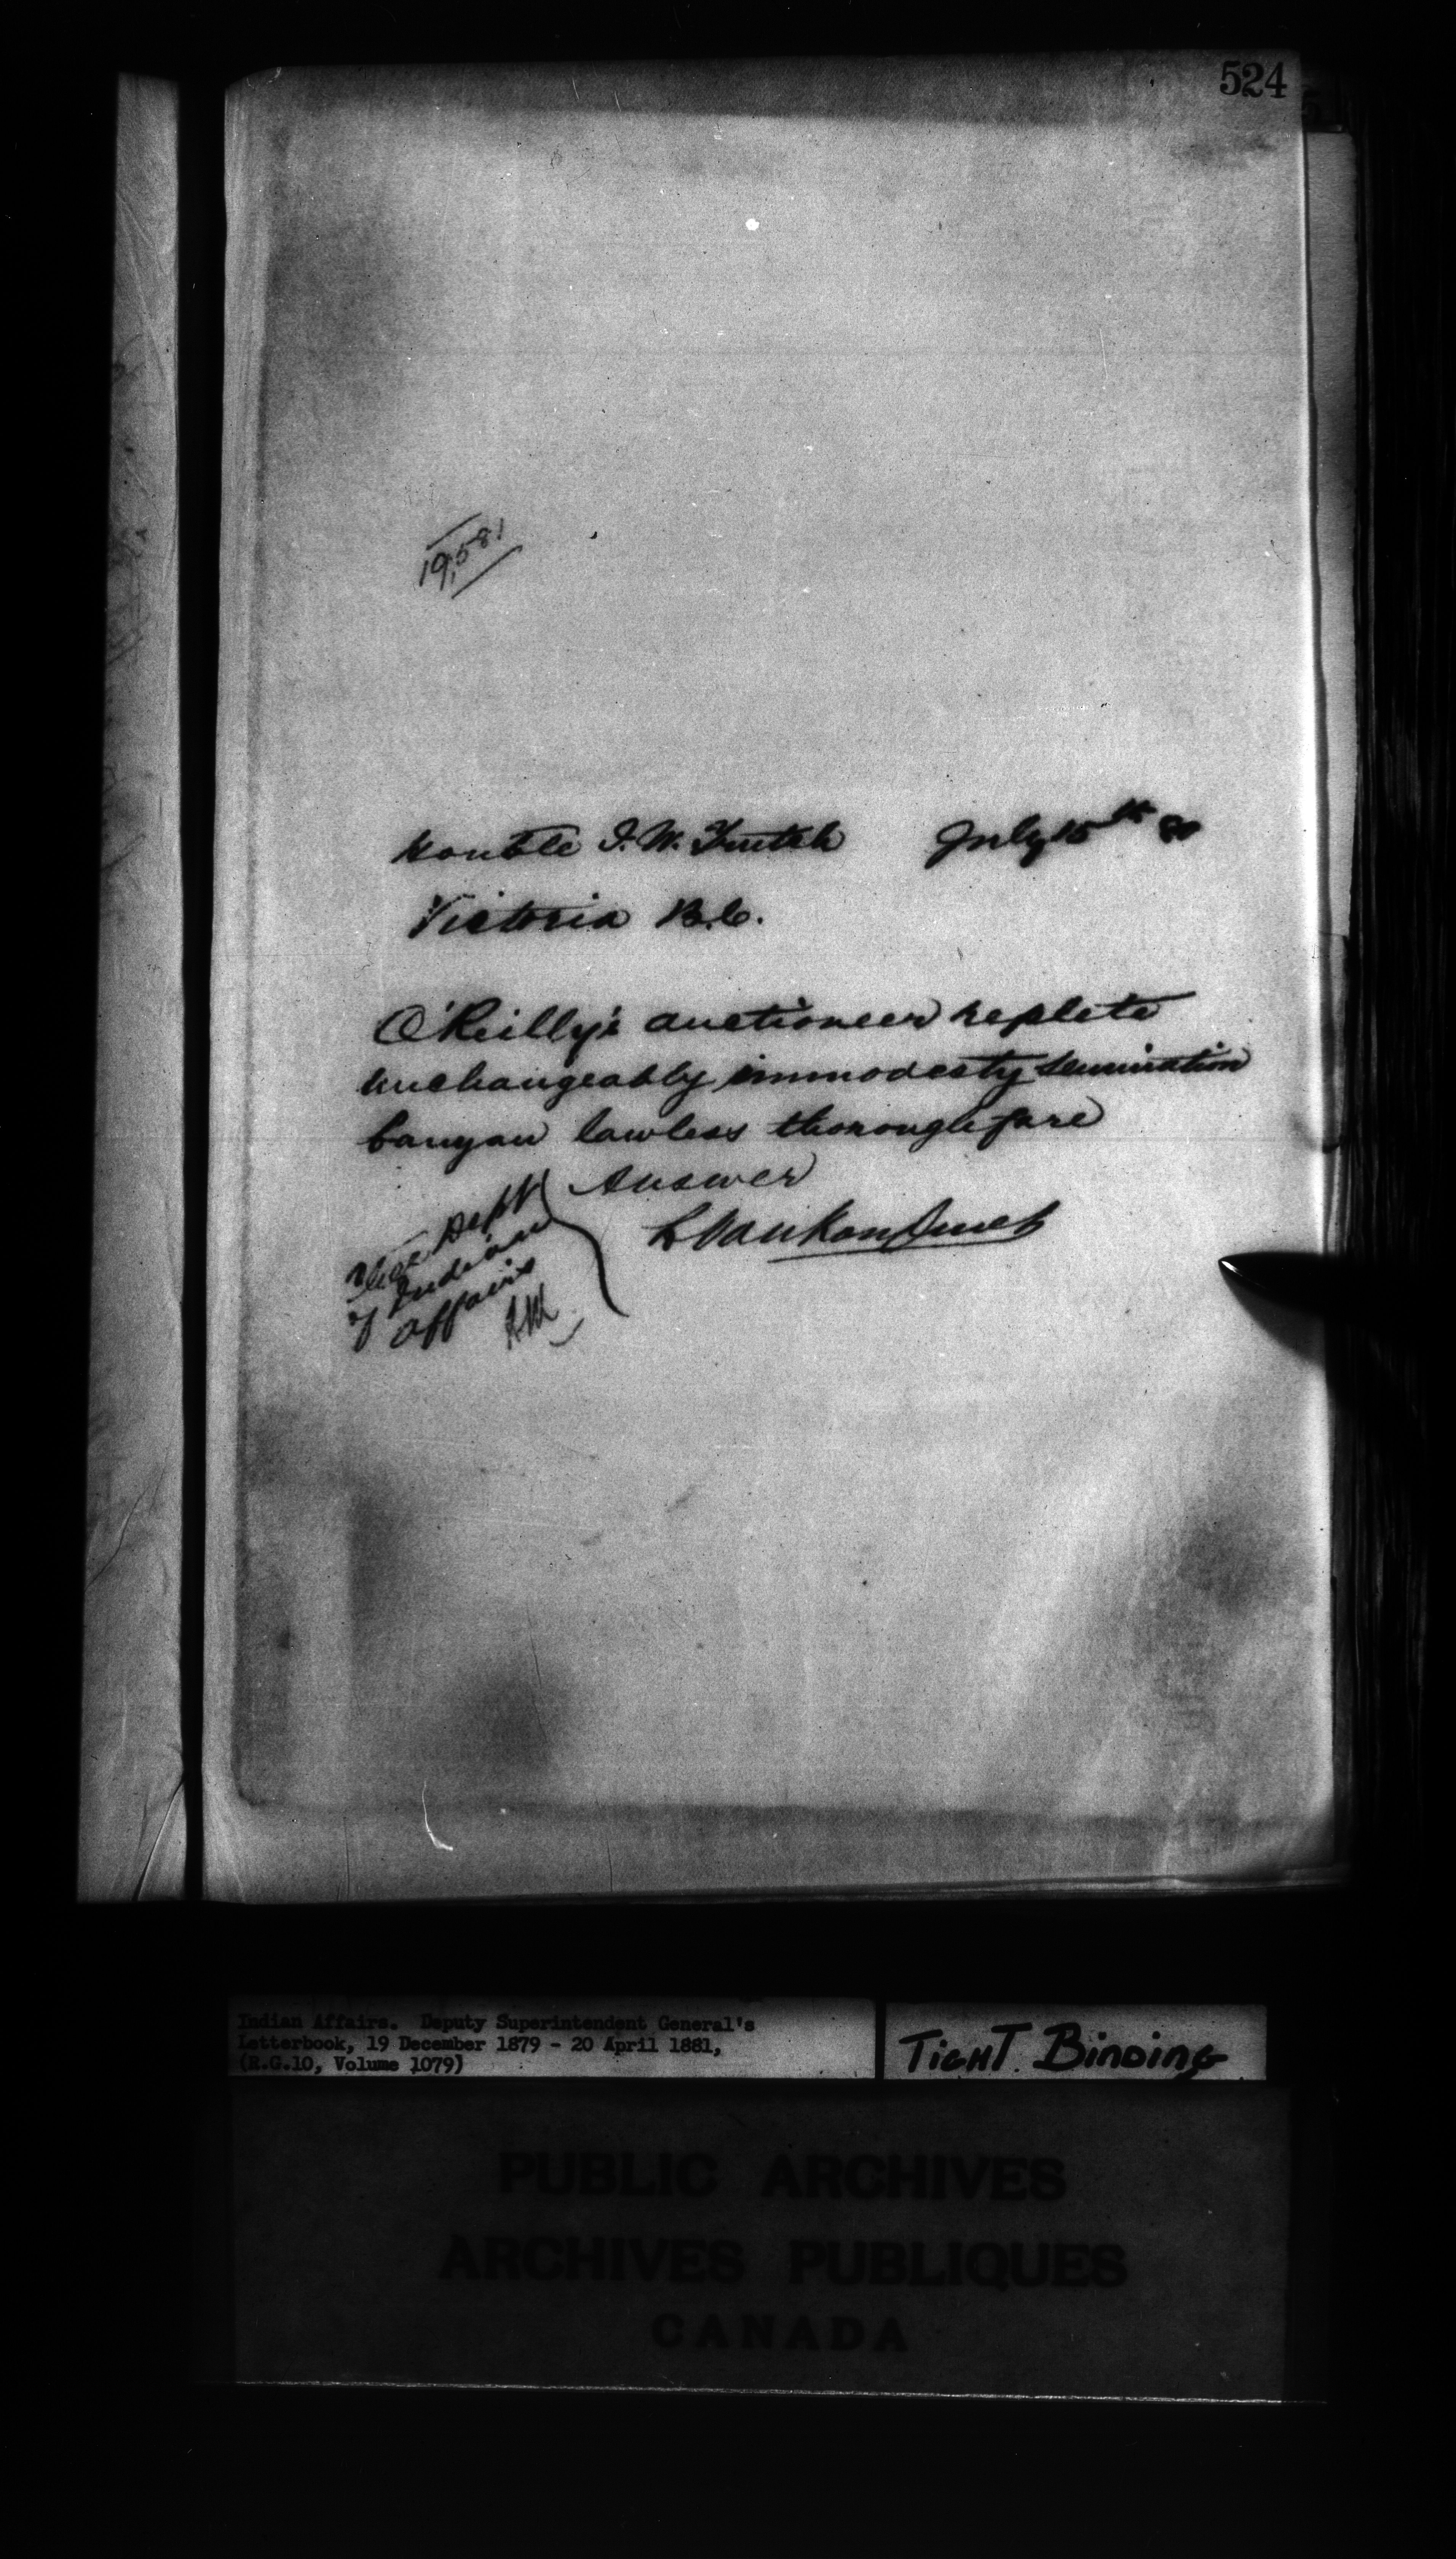 524
19,581
Honble J. W. Trutch July 15th 80
Victoria B.C.
O'Reilly's auctioneer replete
unchangeably immodesty semination
banyan lawless thoroughfare
Answer
L VanKoughnet
Dept
of Indian
Affairs
Indian Affairs. Deputy Superintendent General's
Letterbook, 19 December 1879 - 20 April 1881,
(R.G.10, Volume 1079)
TIGHT BINDING
PUBLIC ARCHIVES
ARCHIVES PUBLIQUES
CANADA